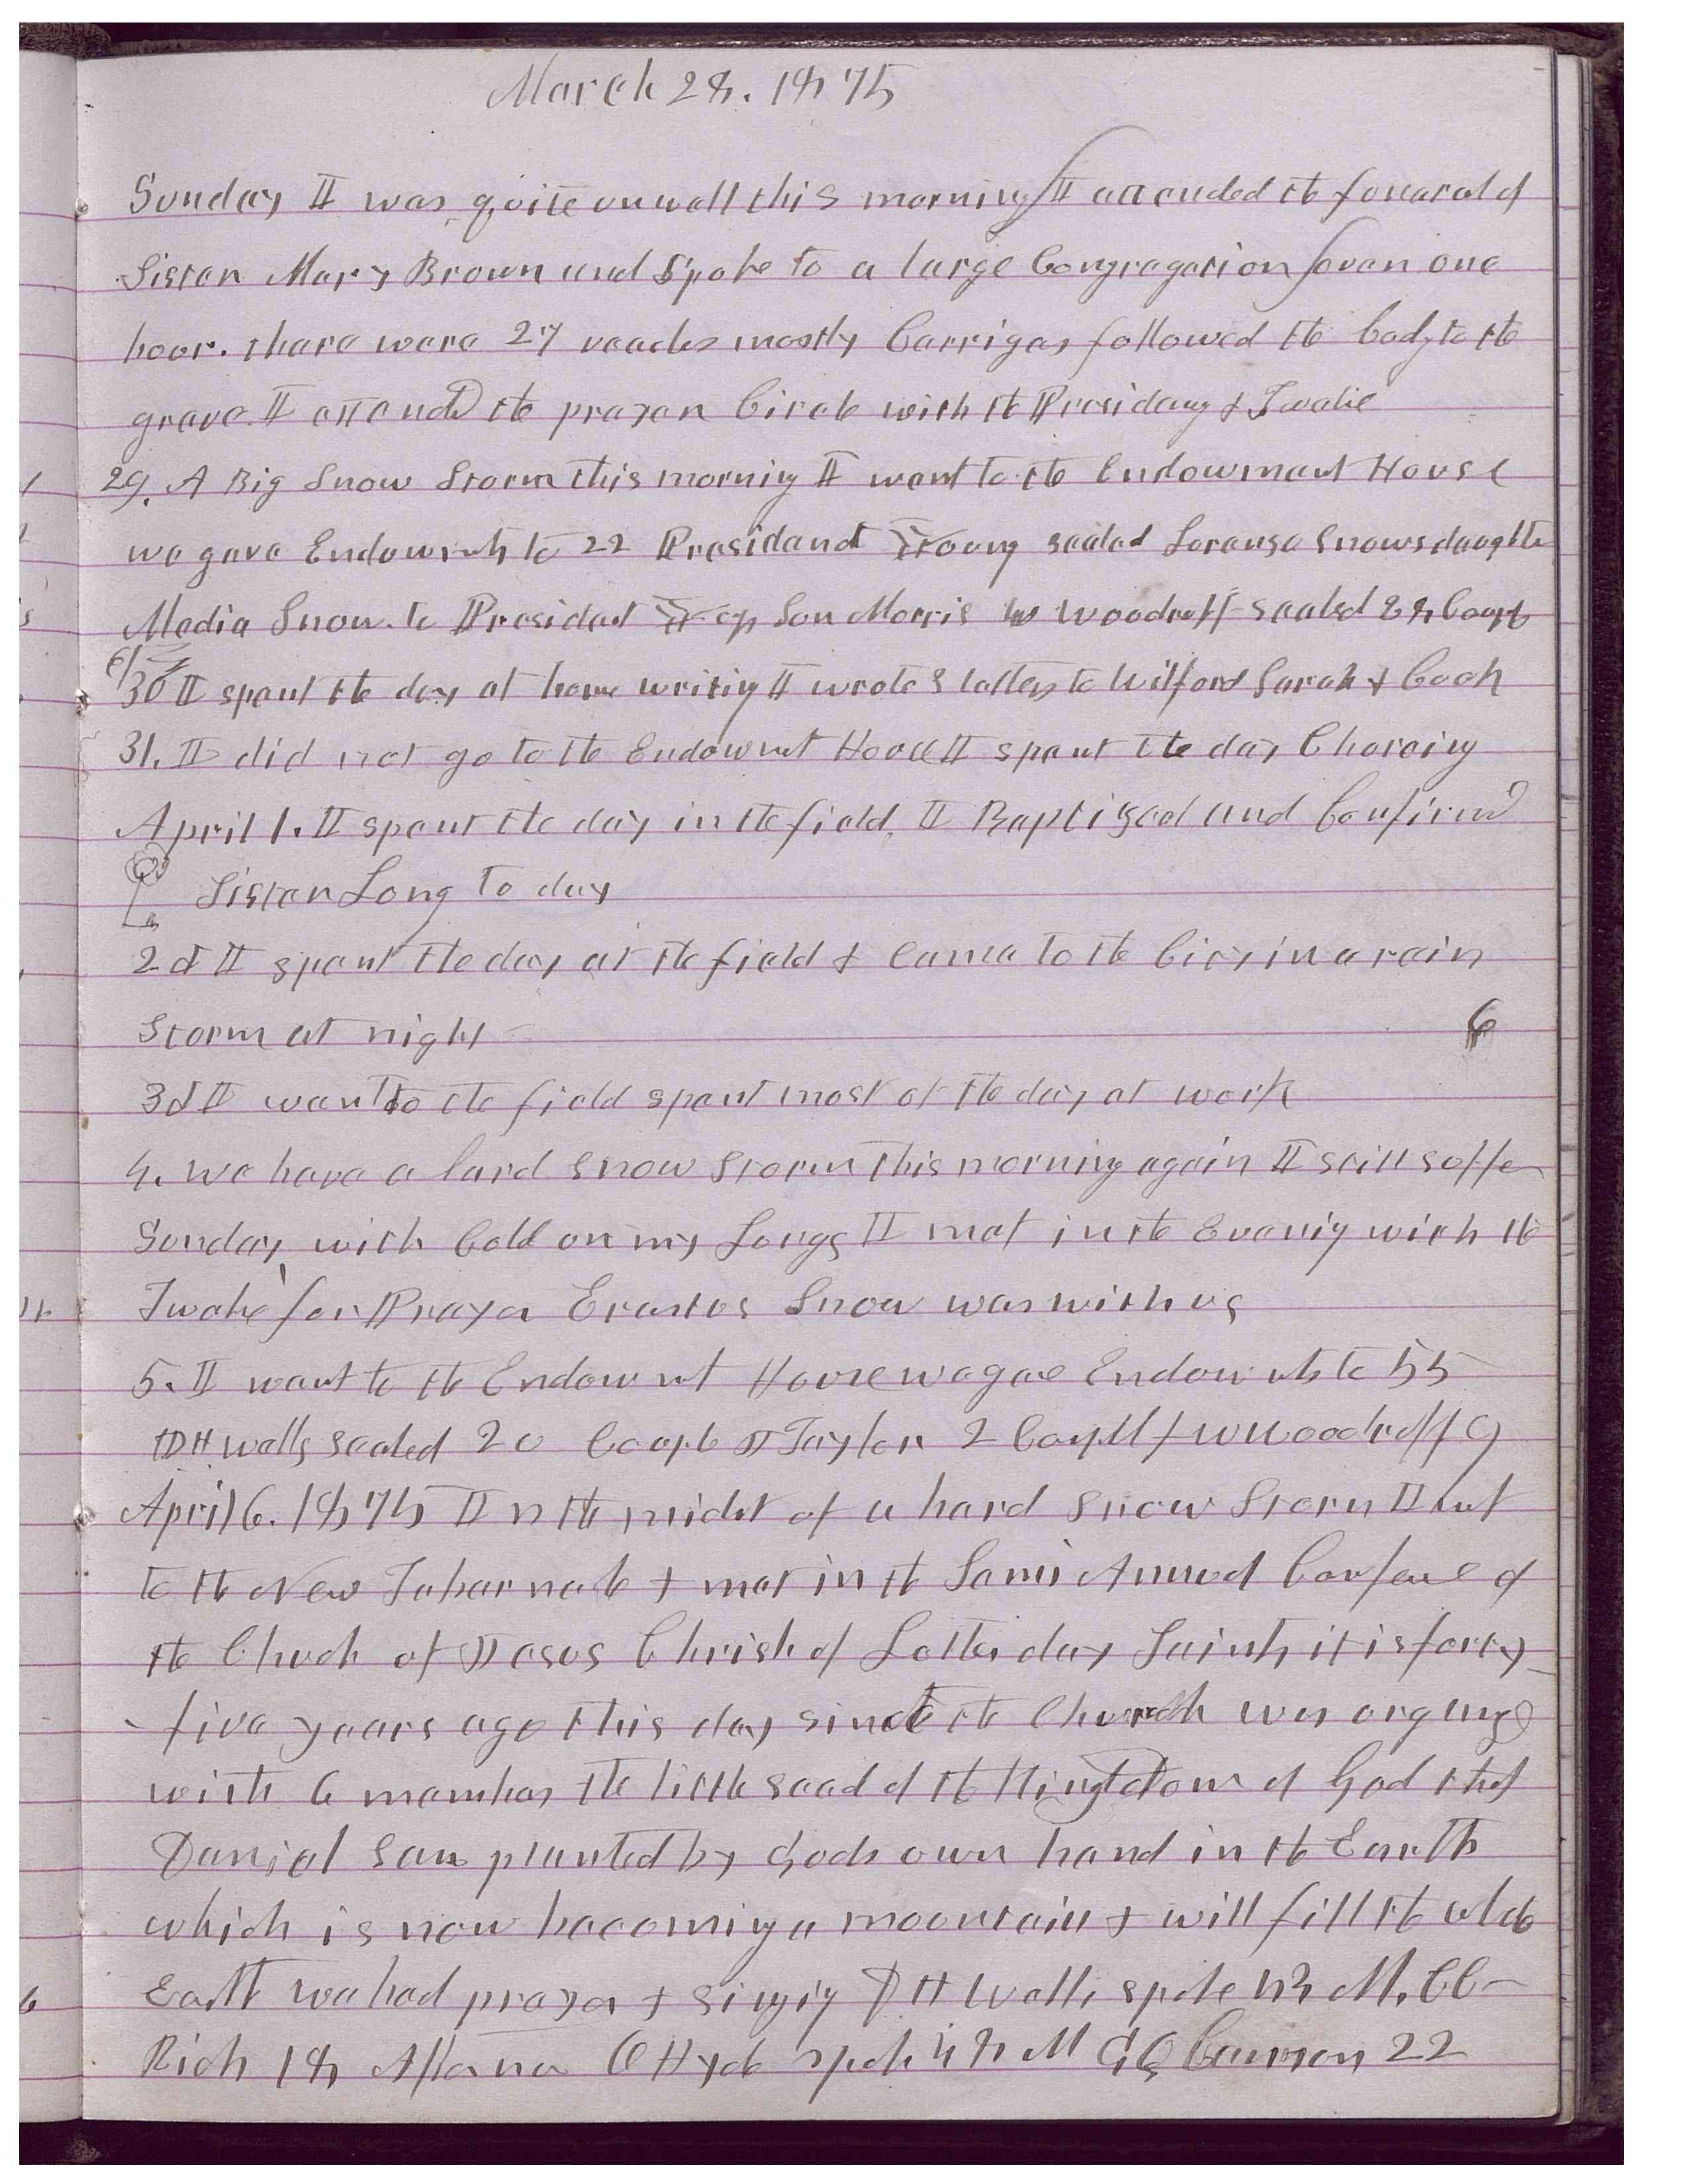 March 28. 1875
Sunday I was quite unwell this morning I attended the funeral of
Sister Mary Brown and Spoke to a large Congregation for an one
hour. there were 27 veacles mostly Carrigas followed the body to the
grave. I attended the prayer Circle with the Presidency & Twelve
29. A Big Snow Storm this morning I went to the Endowment House
we gave Endowmts to 22 President Young sealed Lorenzo Snows daughter
Media Snow to President Youngs Son Morris W Woodruff sealed 8 Coupls
30 I spent the day at home writing I wrote 3 letters to Wilford Sarah &
31. I did not go to the Endowmt House I spent the day Choreing
April 1. I spent the day in the field. I Baptised and Confirmd
Sister Long To day
2d I spent the day at the field & Came to the City in a rain
storm at night 6
3d I went to the field spent most of the day at work
4. We have a hard snow storm this morning again I still suffer
Sunday with Cold on my Lungs I met in the Evening with the
Twelve for Prayer Erastus Snow was with us
5. I went to the Endowmt House we gave Endowmts to 55
D H Wells sealed 20 Couple J Taylor 2 Coupll & W Woodruff 9
April 6. 1875 In the midst of a hard snow Storm I wt
to the New Tabernacle & met in the Semi Annual Confence of
the Chuch of Jesus Christ of Latter day Saints it is forty
-five years ago this day since the Church was organizd
with 6 members the little seed of the Kingdom of God that
Daniel saw planted by Gods own hand in the Earth
which is now becoming a mountain & will fill the whole
Earth we had prayer & singing D H Wells spoke 43 M. CC-
Rich 18 Afternoon O Hyde spoke 48 M G Q Cannon 22